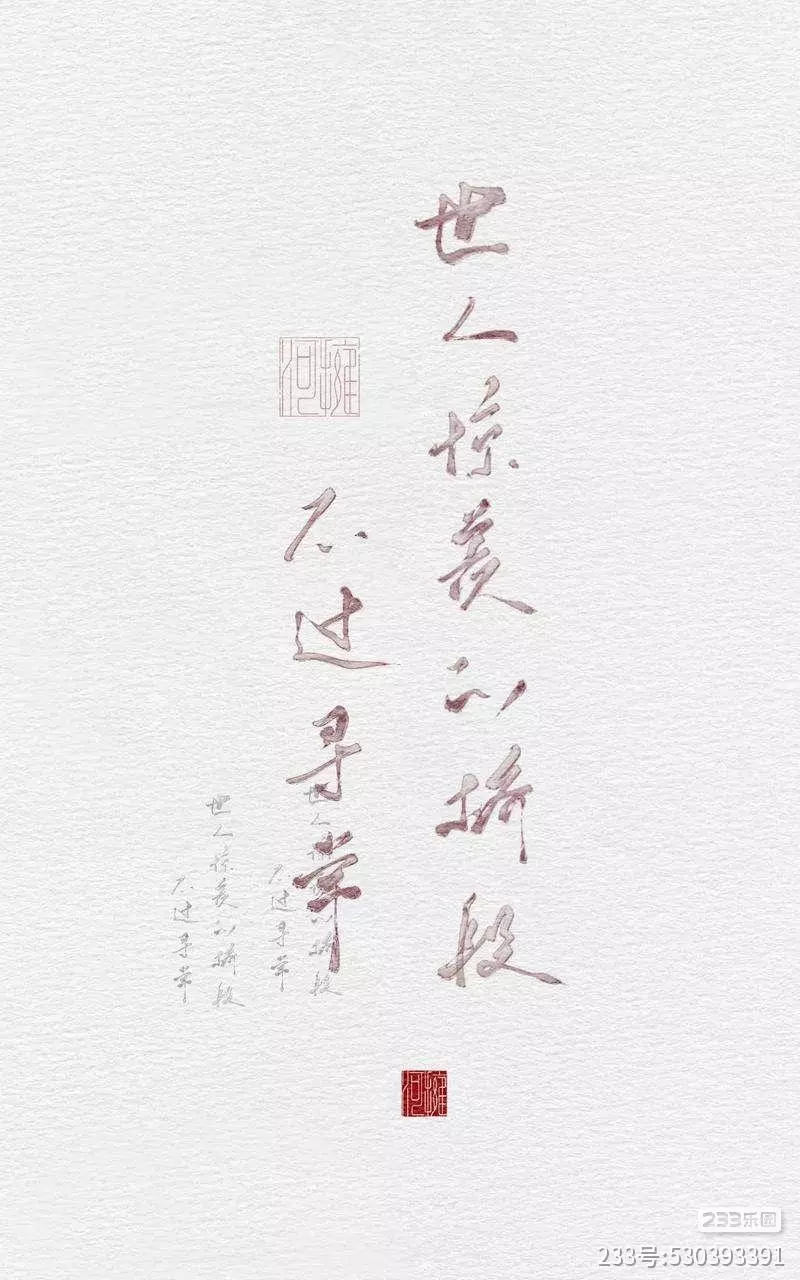 世人惊羡的桥段
不过寻常
世人惊羡的桥段
不过寻常
世人惊羡的桥段
不过寻常
233乐园
233号:530393391